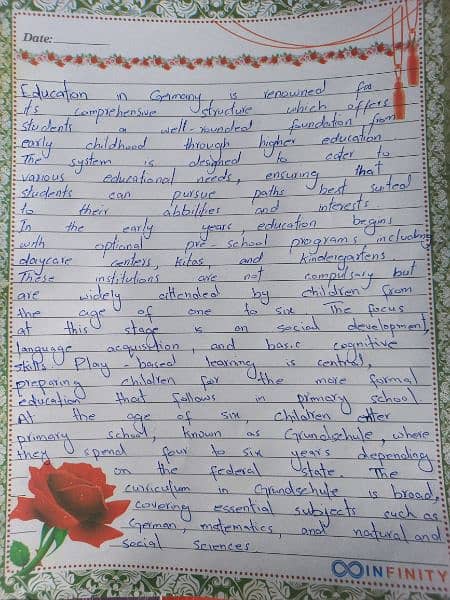 Date:
Education in Germany is renowned for
its comprehensive structure which offers
students a well-rounded foundation from
early childhood through higher education
The system is designed to cater to
various educational needs, ensuring that
students can pursue paths best suited
to their abbilities and interests.
In the early years, education begins
with optional pre-school programs including
daycare centers, kitas and kindergartens.
These institutions are not compulsary but
are widely attended by children from
the age of one to six. The focus
at this stage is on social development,
language acquisition, and basic cognitive
skills. Play-based learning is central,
preparing children for the more formal
education that follows in primary school.
At the age of six, children enter
primary school, known as Grundschule, where
they spend four to six years depending
on the federal state. The
curriculum in Grundschule is broad,
covering essential subjects such as
German, matematics, and natural and
social sciences.
INFINITY